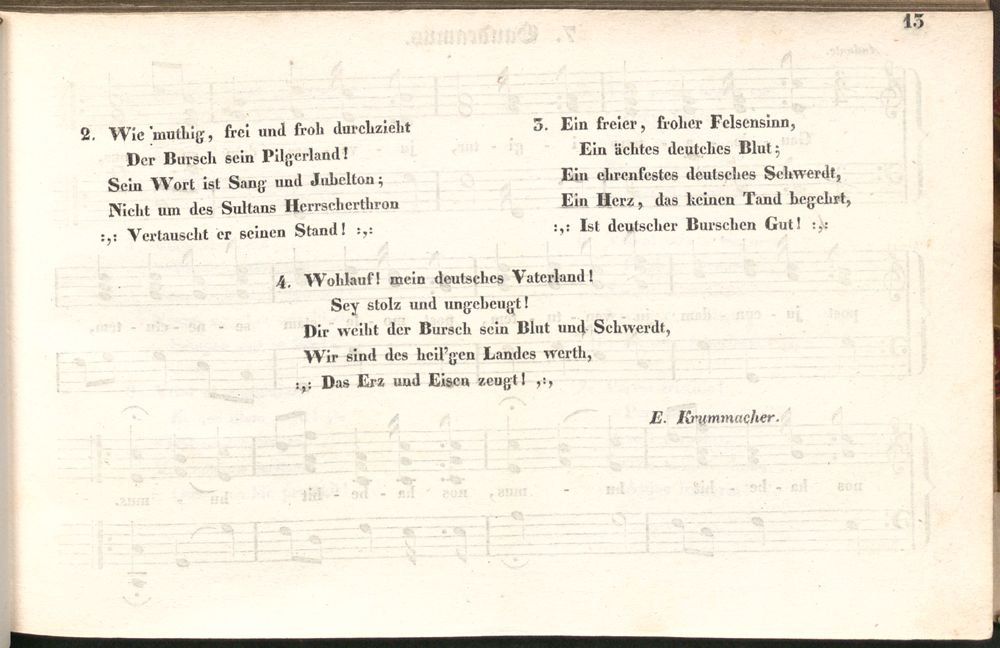 13
2. Wie muthig, frei und froh durchzieht
Der Bursch sein Pilgerland!
Sein Wort ist Sang und Jubelton;
Nicht um des Sultans Herrscherthron
:,: Vertauscht er seinen Stand! :,:
3. Ein freier, froher Felsensinn,
Ein ächtes deutches Blut;
Ein ehrenfestes deutsches Schwerdt,
Ein Herz, das keinen Tand begehrt,
:,: Ist deutscher Burschen Gut! :,:
4. Wohlauf! mein deutsches Vaterland!
Sey stolz und ungebeugt!
Dir weiht der Bursch sein Blut und Schwerdt,
Wir sind des heil'gen Landes werth,
:,: Das Erz und Eisen zeugt! ,:,
E. Krummacher.